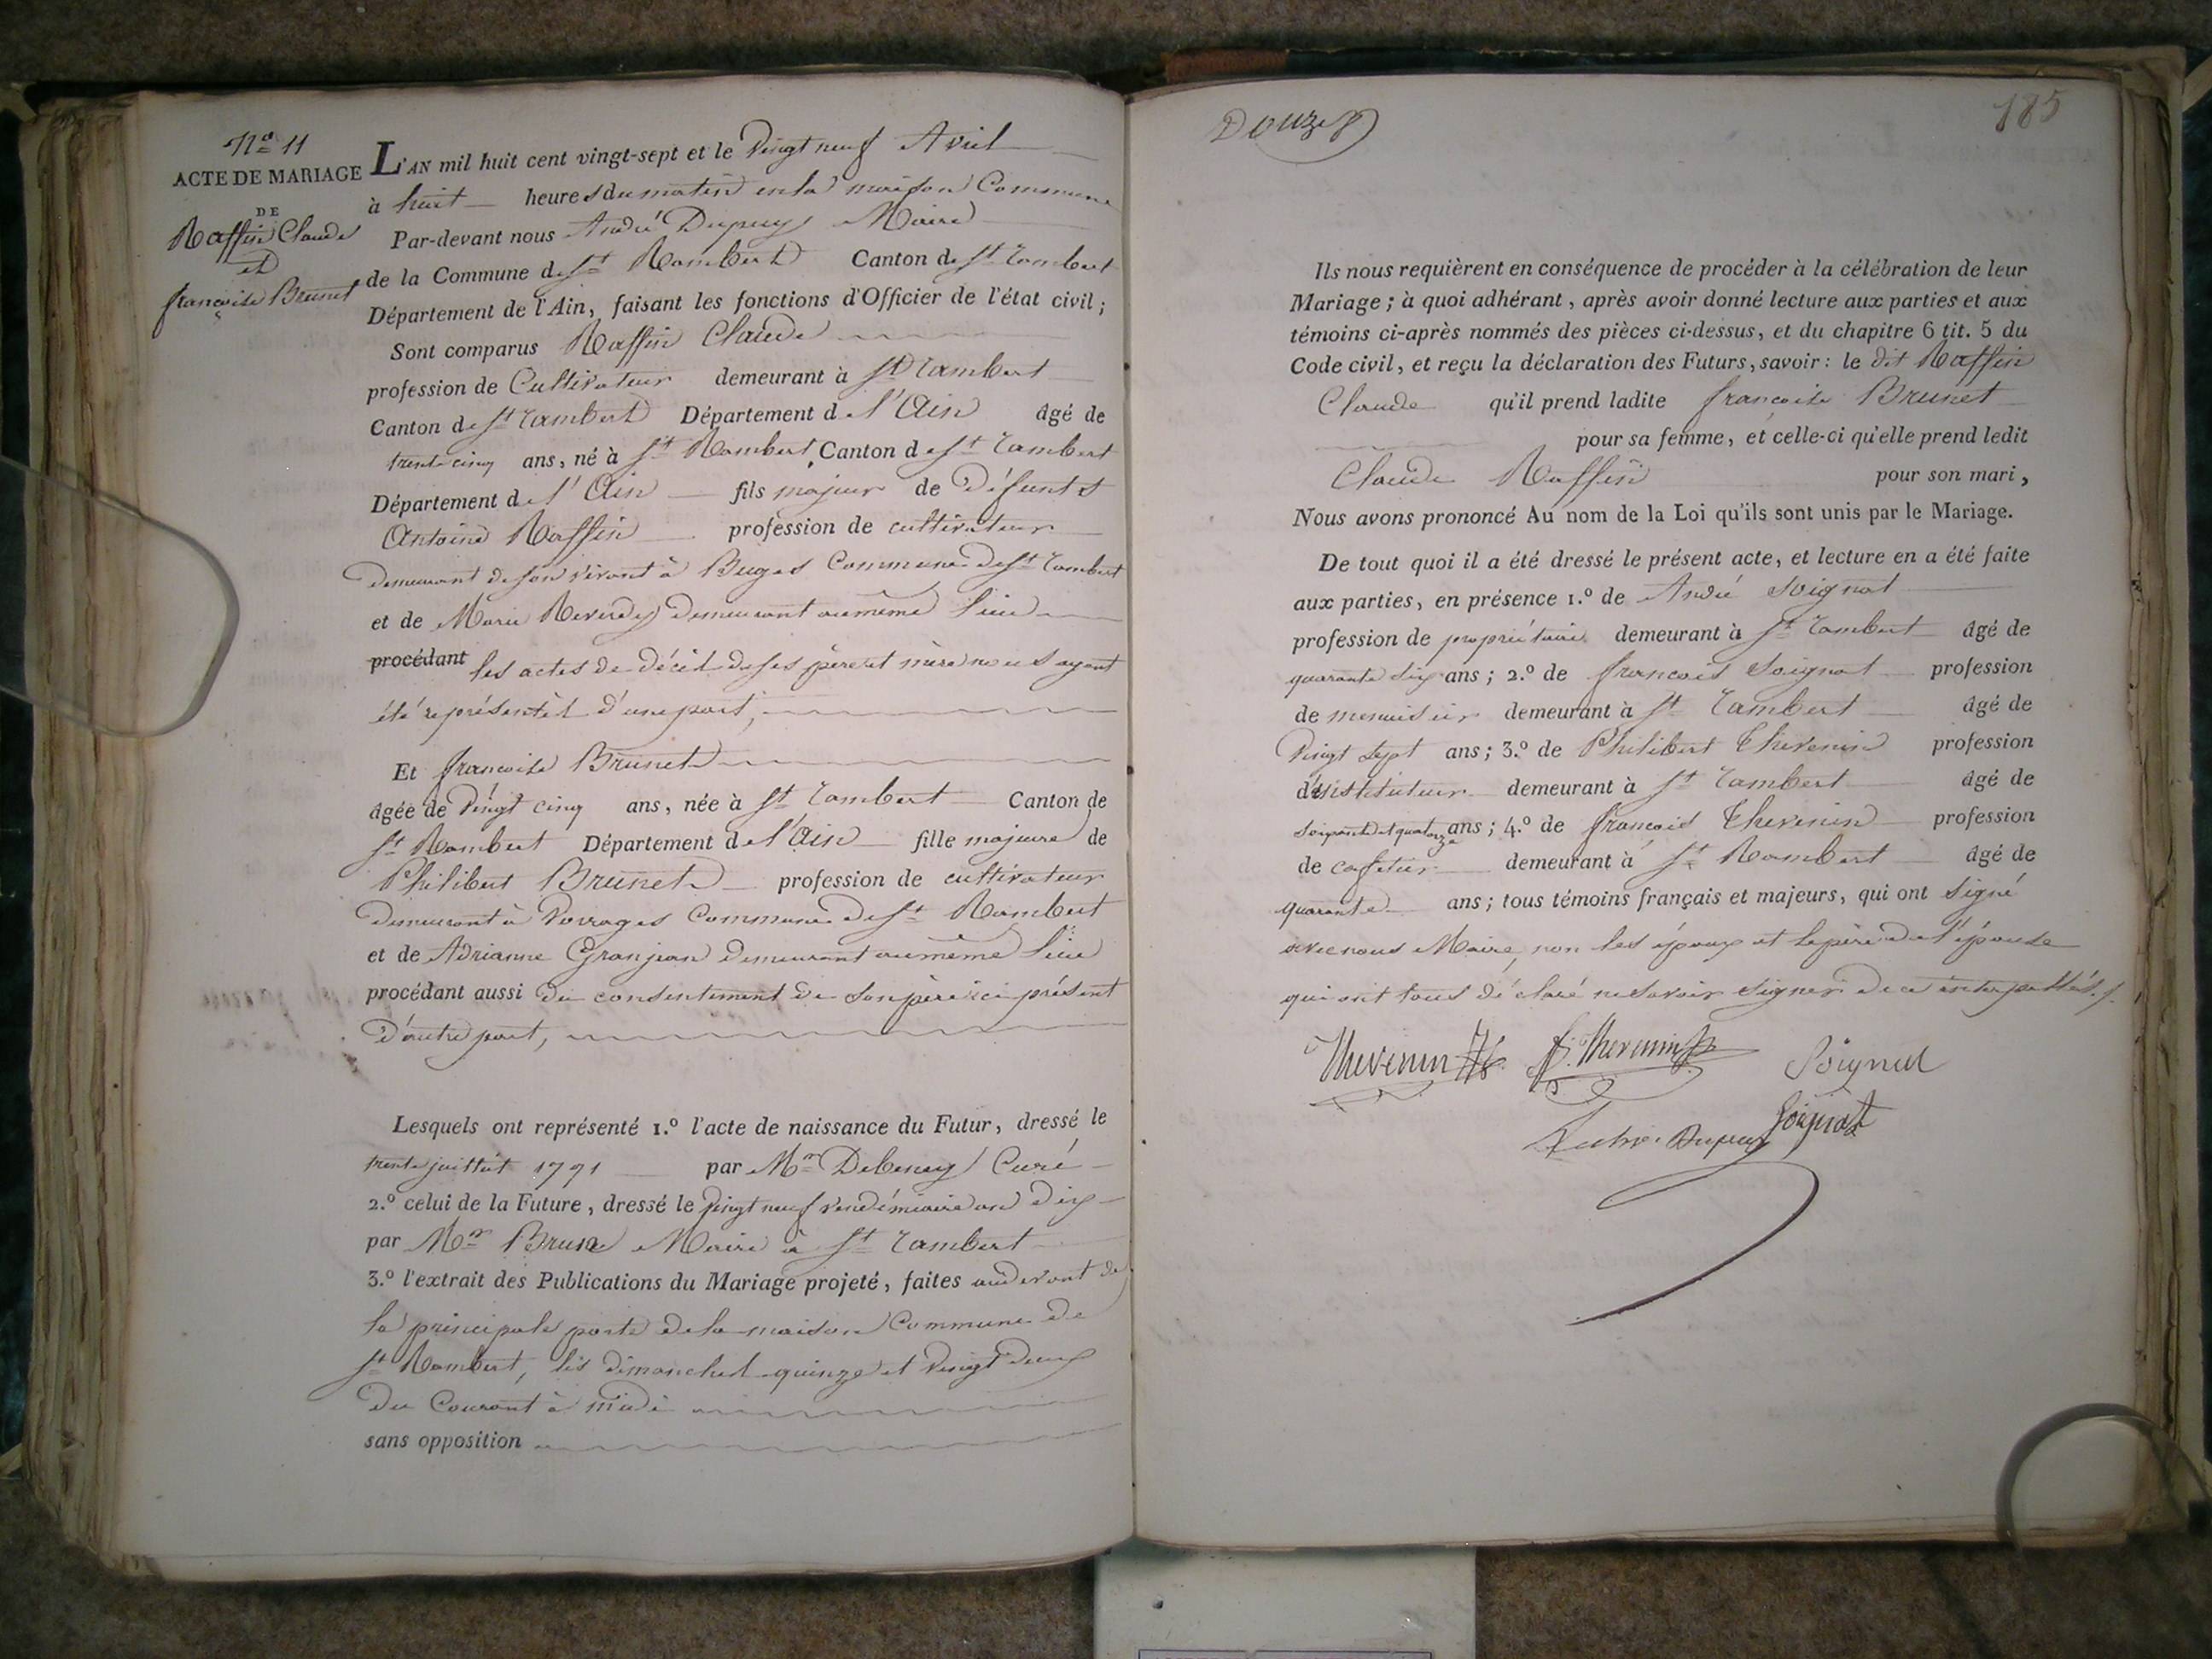 N.º 11
ACTE DE MARIAGE
DE
Raffin Claude
et
françoise Brunet
L'AN mil huit cent vingt-sept et le Vingt neuf Avril
à huit heures du matin en la maison Commune
Par-devant nous André Dupuy Maire
de la Commune de St Rambert Canton de St Rambert
Département de l'Ain, faisant les fonctions d'Officier de l'état civil;
Sont comparus Raffin Claude
profession de Cultivateur demeurant à St Rambert
Canton de St Rambert Département de l'Ain âgé de
trente cinq ans, né à St Rambert, Canton de St Rambert
Département de l'Ain fils majeur de Défunts
Antoine Raffin profession de cultivateur
demeurant de son vivant à Buges Commune de St Rambert
et de Marie Reverdy demeurant au même lieu
procédant les actes de décès de ses père et mère nous ayant
été représentés d'une part,
Et françoise Brunet
âgée de vingt cinq ans, née à St Rambert Canton de
St Rambert Département de l'Ain fille majeure de
Philibert Brunet profession de cultivateur
demeurant à Vorages Commune de St Rambert
et de Adrianne Granjean demeurant au même lieu
procédant aussi du consentement de son père ici présent
d'autre part,
Lesquels ont représenté 1.º l'acte de naissance du Futur, dressé le
trente juillet 1791 par Mr Debeney Curé
2.º celui de la Future, dressé le vingt neuf vendémiaire an dix
par Mr Brun Maire à St Rambert
3.º l'extrait des Publications du Mariage projeté, faites au devant de
la principale porte de la maison Commune de
St Rambert, les dimanches quinze et vingt deux
du Courant à midi
sans opposition
Douze
185
Ils nous requièrent en conséquence de procéder à la célébration de leur
Mariage; à quoi adhérant, après avoir donné lecture aux parties et aux
témoins ci-après nommés des pièces ci-dessus, et du chapitre 6 tit. 5 du
Code civil, et reçu la déclaration des Futurs, savoir: le dit Raffin
Claude qu'il prend ladite françoise Brunet
pour sa femme, et celle-ci qu'elle prend ledit
Claude Raffin pour son mari,
Nous avons prononcé Au nom de la Loi qu'ils sont unis par le Mariage.
De tout quoi il a été dressé le présent acte, et lecture en a été faite
aux parties, en présence 1.º de André Soignat
profession de propriétaire demeurant à St Rambert âgé de
quarante six ans; 2.º de françois Soignat profession
de menuisier demeurant à St Rambert âgé de
Vingt sept ans; 3.º de Philibert Thevenin profession
d'instituteur demeurant à St Rambert âgé de
soixante et quatorze ans; 4.º de françois Thevenin profession
de cafetier demeurant à St Rambert âgé de
quarante ans; tous témoins français et majeurs, qui ont signé
avec nous Maire, non les époux et le père de l'épouse
qui ont tous déclaré ne savoir signer de ce interpellés./.
Thevenin F. Thevenin Soignat
Andre Dupuy Soignat